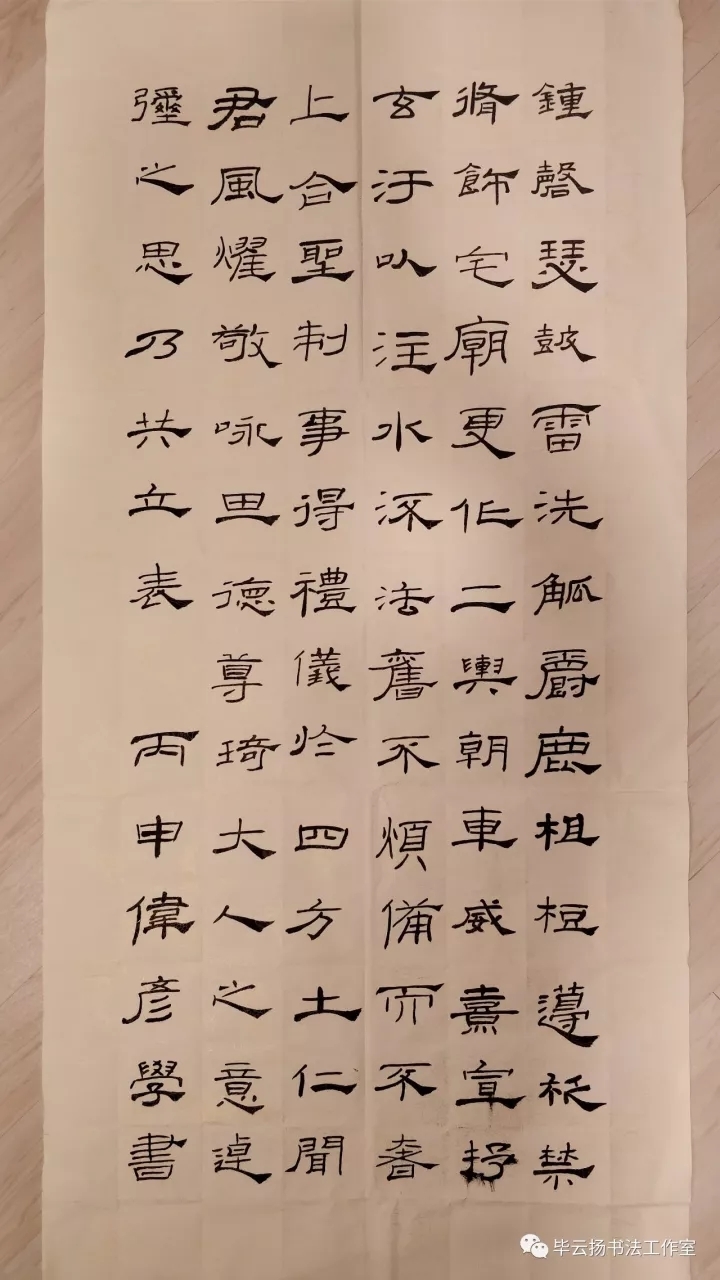 鍾磬瑟鼓雷洗觚爵鹿柤梪籩柉禁
脩飾宅廟更作二輿朝車威熹宣抒
玄汙以注水流法舊不煩備而不奢
上合聖制事得禮儀於四方土仁聞
君風燿敬咏其德尊琦大人之意逴
彌之思乃共立表 丙申偉彥學書
毕云扬书法工作室